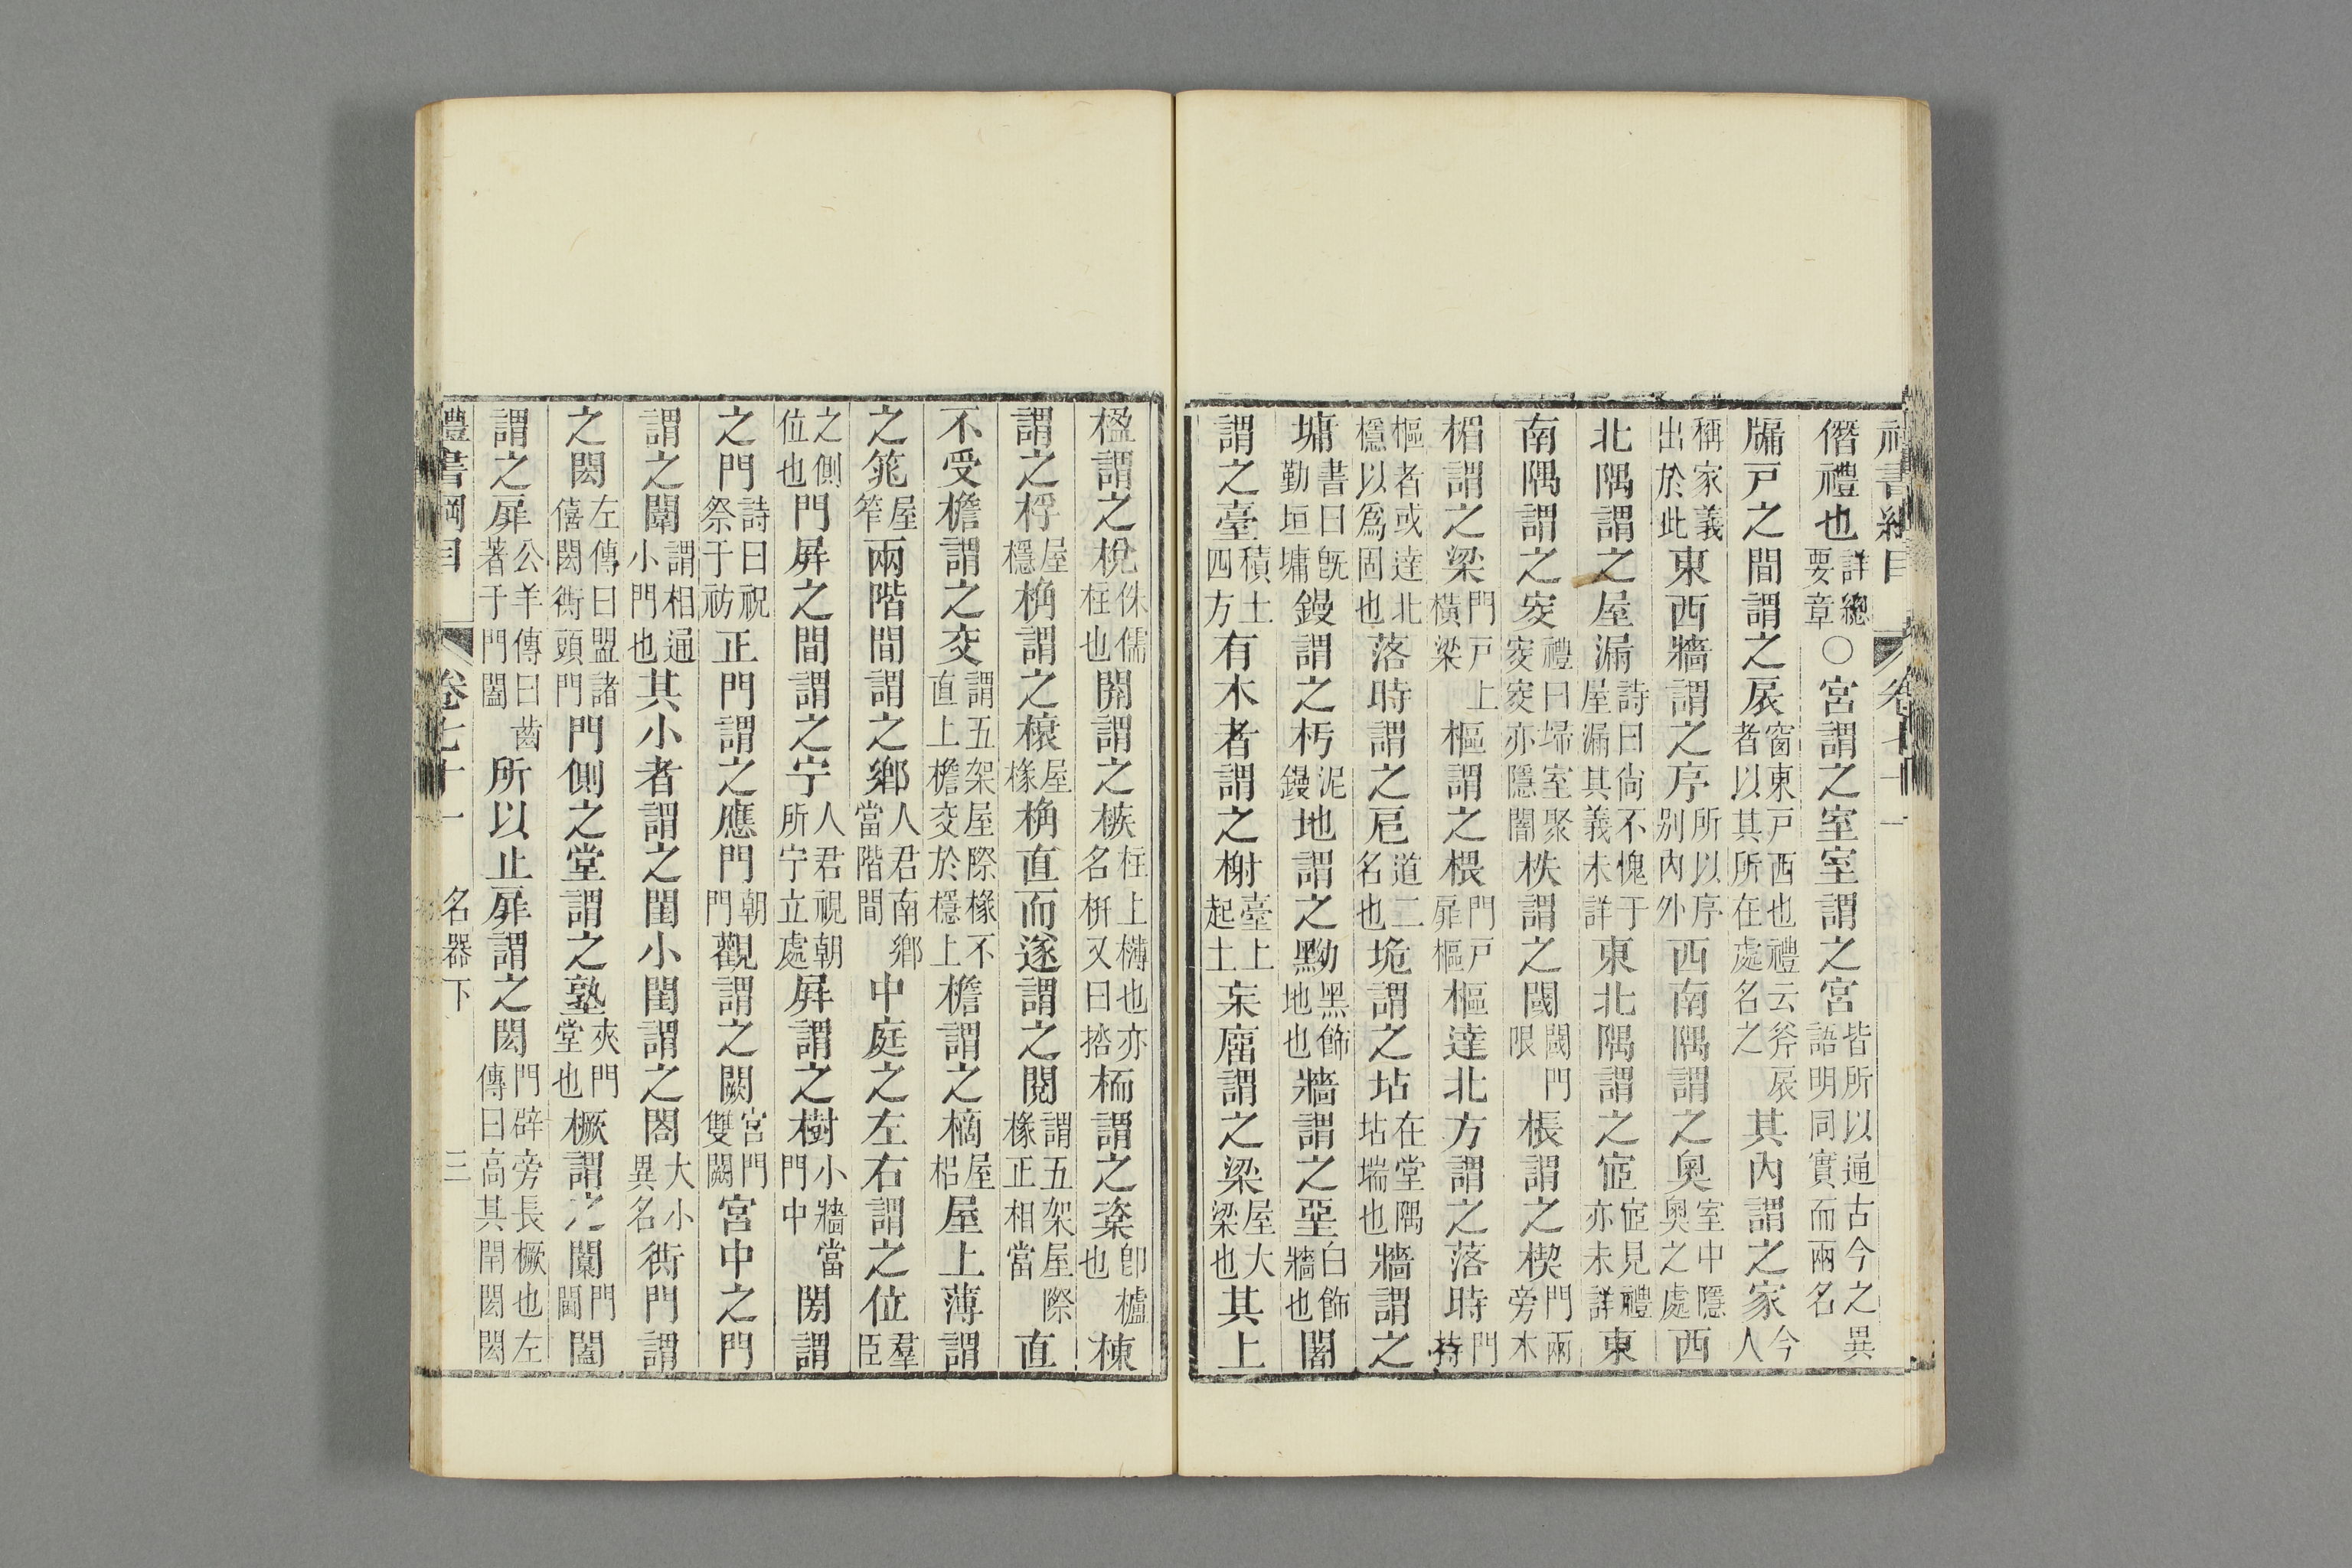 禮書綱目 卷七十一
僭禮也詳總要章○宮謂之室室謂之宮皆所以通古今之異語明同實而兩名
牖戸之間謂之扆窗東戸西也禮云斧扆者以其所在處名之其內謂之家今人
稱家義出於此東西牆謂之序所以序別內外西南隅謂之奧室中隱奧之處西
北隅謂之屋漏詩曰尙不愧于屋漏其義未詳東北隅謂之宧宧見禮亦未詳東
南隅謂之窔禮曰埽室聚窔窔亦隱闇柣謂之閾閾門限棖謂之楔門兩旁木
楣謂之梁門戸上橫梁樞謂之椳門戸扉樞樞達北方謂之落時門持
樞者或達北檼以爲固也落時謂之戹道二名也垝謂之坫在堂隅坫端也牆謂之
墉書曰旣勤垣墉鏝謂之杇泥鏝地謂之黝黑飾地也牆謂之堊白飾牆也闍
謂之臺積土四方有木者謂之榭臺上起土杗廇謂之梁屋大梁也其上
楹謂之梲侏儒柱也開謂之槉柱上欂也亦名枅又曰㭼栭謂之楶卽櫨也棟
謂之桴屋檼桷謂之榱屋椽桷直而遂謂之閱謂五架屋際椽正相當直
不受檐謂之交謂五架屋際椽不直上檐交於檼上檐謂之樀屋梠屋上薄謂
之筄屋笮兩階間謂之鄉人君南鄉當階間中庭之左右謂之位羣臣
之側位也門屛之間謂之宁人君視朝所宁立處屛謂之樹小牆當門中閍謂
之門詩曰祝祭于祊正門謂之應門朝門觀謂之闕宮門雙闕宮中之門
謂之闈謂相通小門也其小者謂之閨小閨謂之閤大小異名衖門謂
之閎左傳曰盟諸僖閎衖頭門門側之堂謂之塾夾門堂也橛謂之闑門閫闔
謂之扉公羊傳曰齒著于門闔所以止扉謂之閎門辟旁長橛也左傳曰高其閈閎閎
禮書綱目 卷七十一 名器下 三